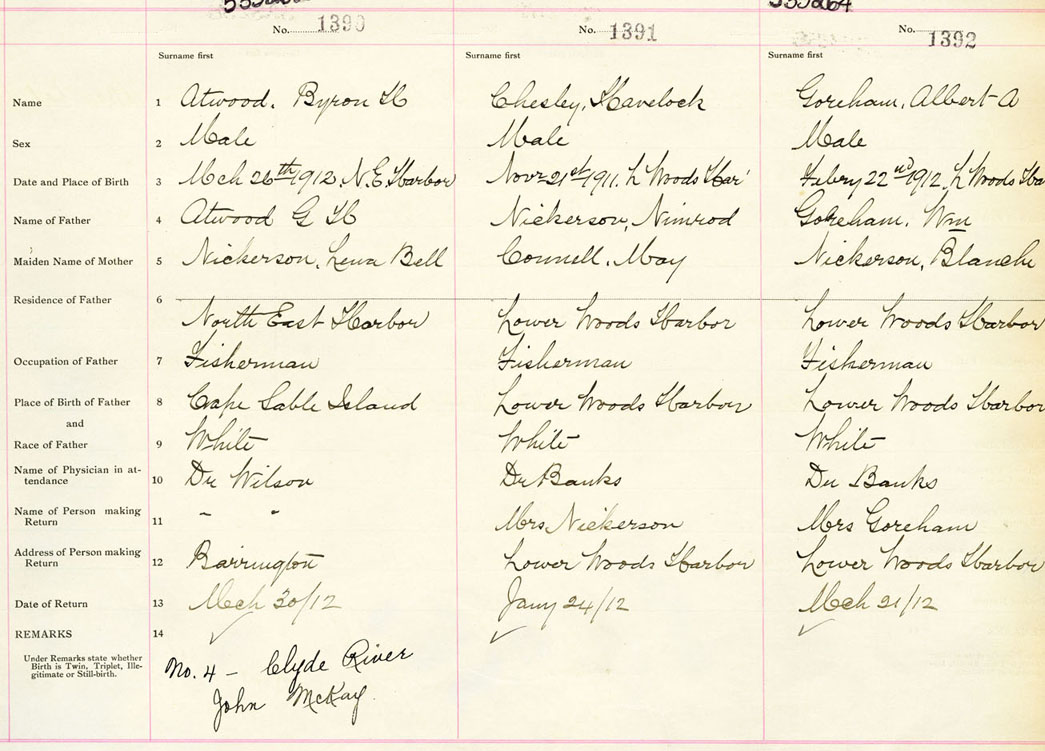 No. 1390 No. 1391 No. 1392
Surname first Surname first Surname first
Name 1 Atwood, Byron H Chesley, Havelock Goreham, Albert A
Sex 2 Male Male Male
Date and Place of Birth 3 Mch 26th 1912, N.E. Harbor Novr 21st 1911, L Woods Har' Febry 22nd 1912, L Woods Ha
Name of Father 4 Atwood G H Nickerson, Nimrod Goreham, Wm
Maiden Name of Mother 5 Nickerson, Lena Bell Connell, May Nickerson, Blanche
Residence of Father 6
North East Harbor Lower Woods Harbor Lower Woods Harbor
Occupation of Father 7 Fisherman Fisherman Fisherman
Place of Birth of Father 8 Cape Sable Island Lower Woods Harbor Lower Woods Harbor
and
Race of Father 9 White White White
Name of Physician in at-
tendance 10 Dr Wilson Dr Banks Dr Banks
Name of Person making
Return 11 " " Mrs Nickerson Mrs Goreham
Address of Person making
Return 12 Barrington Lower Woods Harbor Lower Woods Harbor
Date of Return 13 Mch 30/12 Jany 24/12 Mch 21/12
REMARKS 14
Under Remarks state whether
Birth is Twin, Triplet, Ille-
gitimate or Still-birth.
No. 4 - Clyde River
John McKay